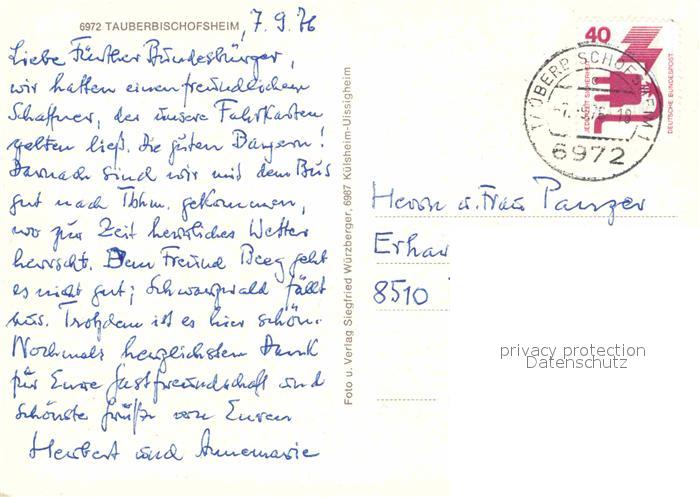 6972 TAUBERBISCHOFSHEIM, 7.9.76
Liebe Fürther Bundesbürger,
wir hatten einen freundlichen
Schaffner, der unsere Fahrkarten
gelten ließ. Die guten Bayern!
Darnach sind wir mit dem Bus
gut nach Tbhm. gekommen,
wo zur Zeit herrliches Wetter
herrscht. Dem Freund Beeg geht
es nicht gut; Schwarzwald fällt
aus. Trotzdem ist es hier schön.
Nochmals herzlichsten Dank
für Eure Gastfreundschaft und
schönste Grüße von Euren
Herbert und Annemarie
Foto u. Verlag Siegfried Würzberger, 6987 Külsheim-Uissigheim
40
JEDERZEIT SICHERHEIT
DEUTSCHE BUNDESPOST
TAUBERBISCHOFSHEIM 1
-7.-9.76-18
6972
Herrn u. Frau Panzer
Erhar
8510
privacy protection
Datenschutz